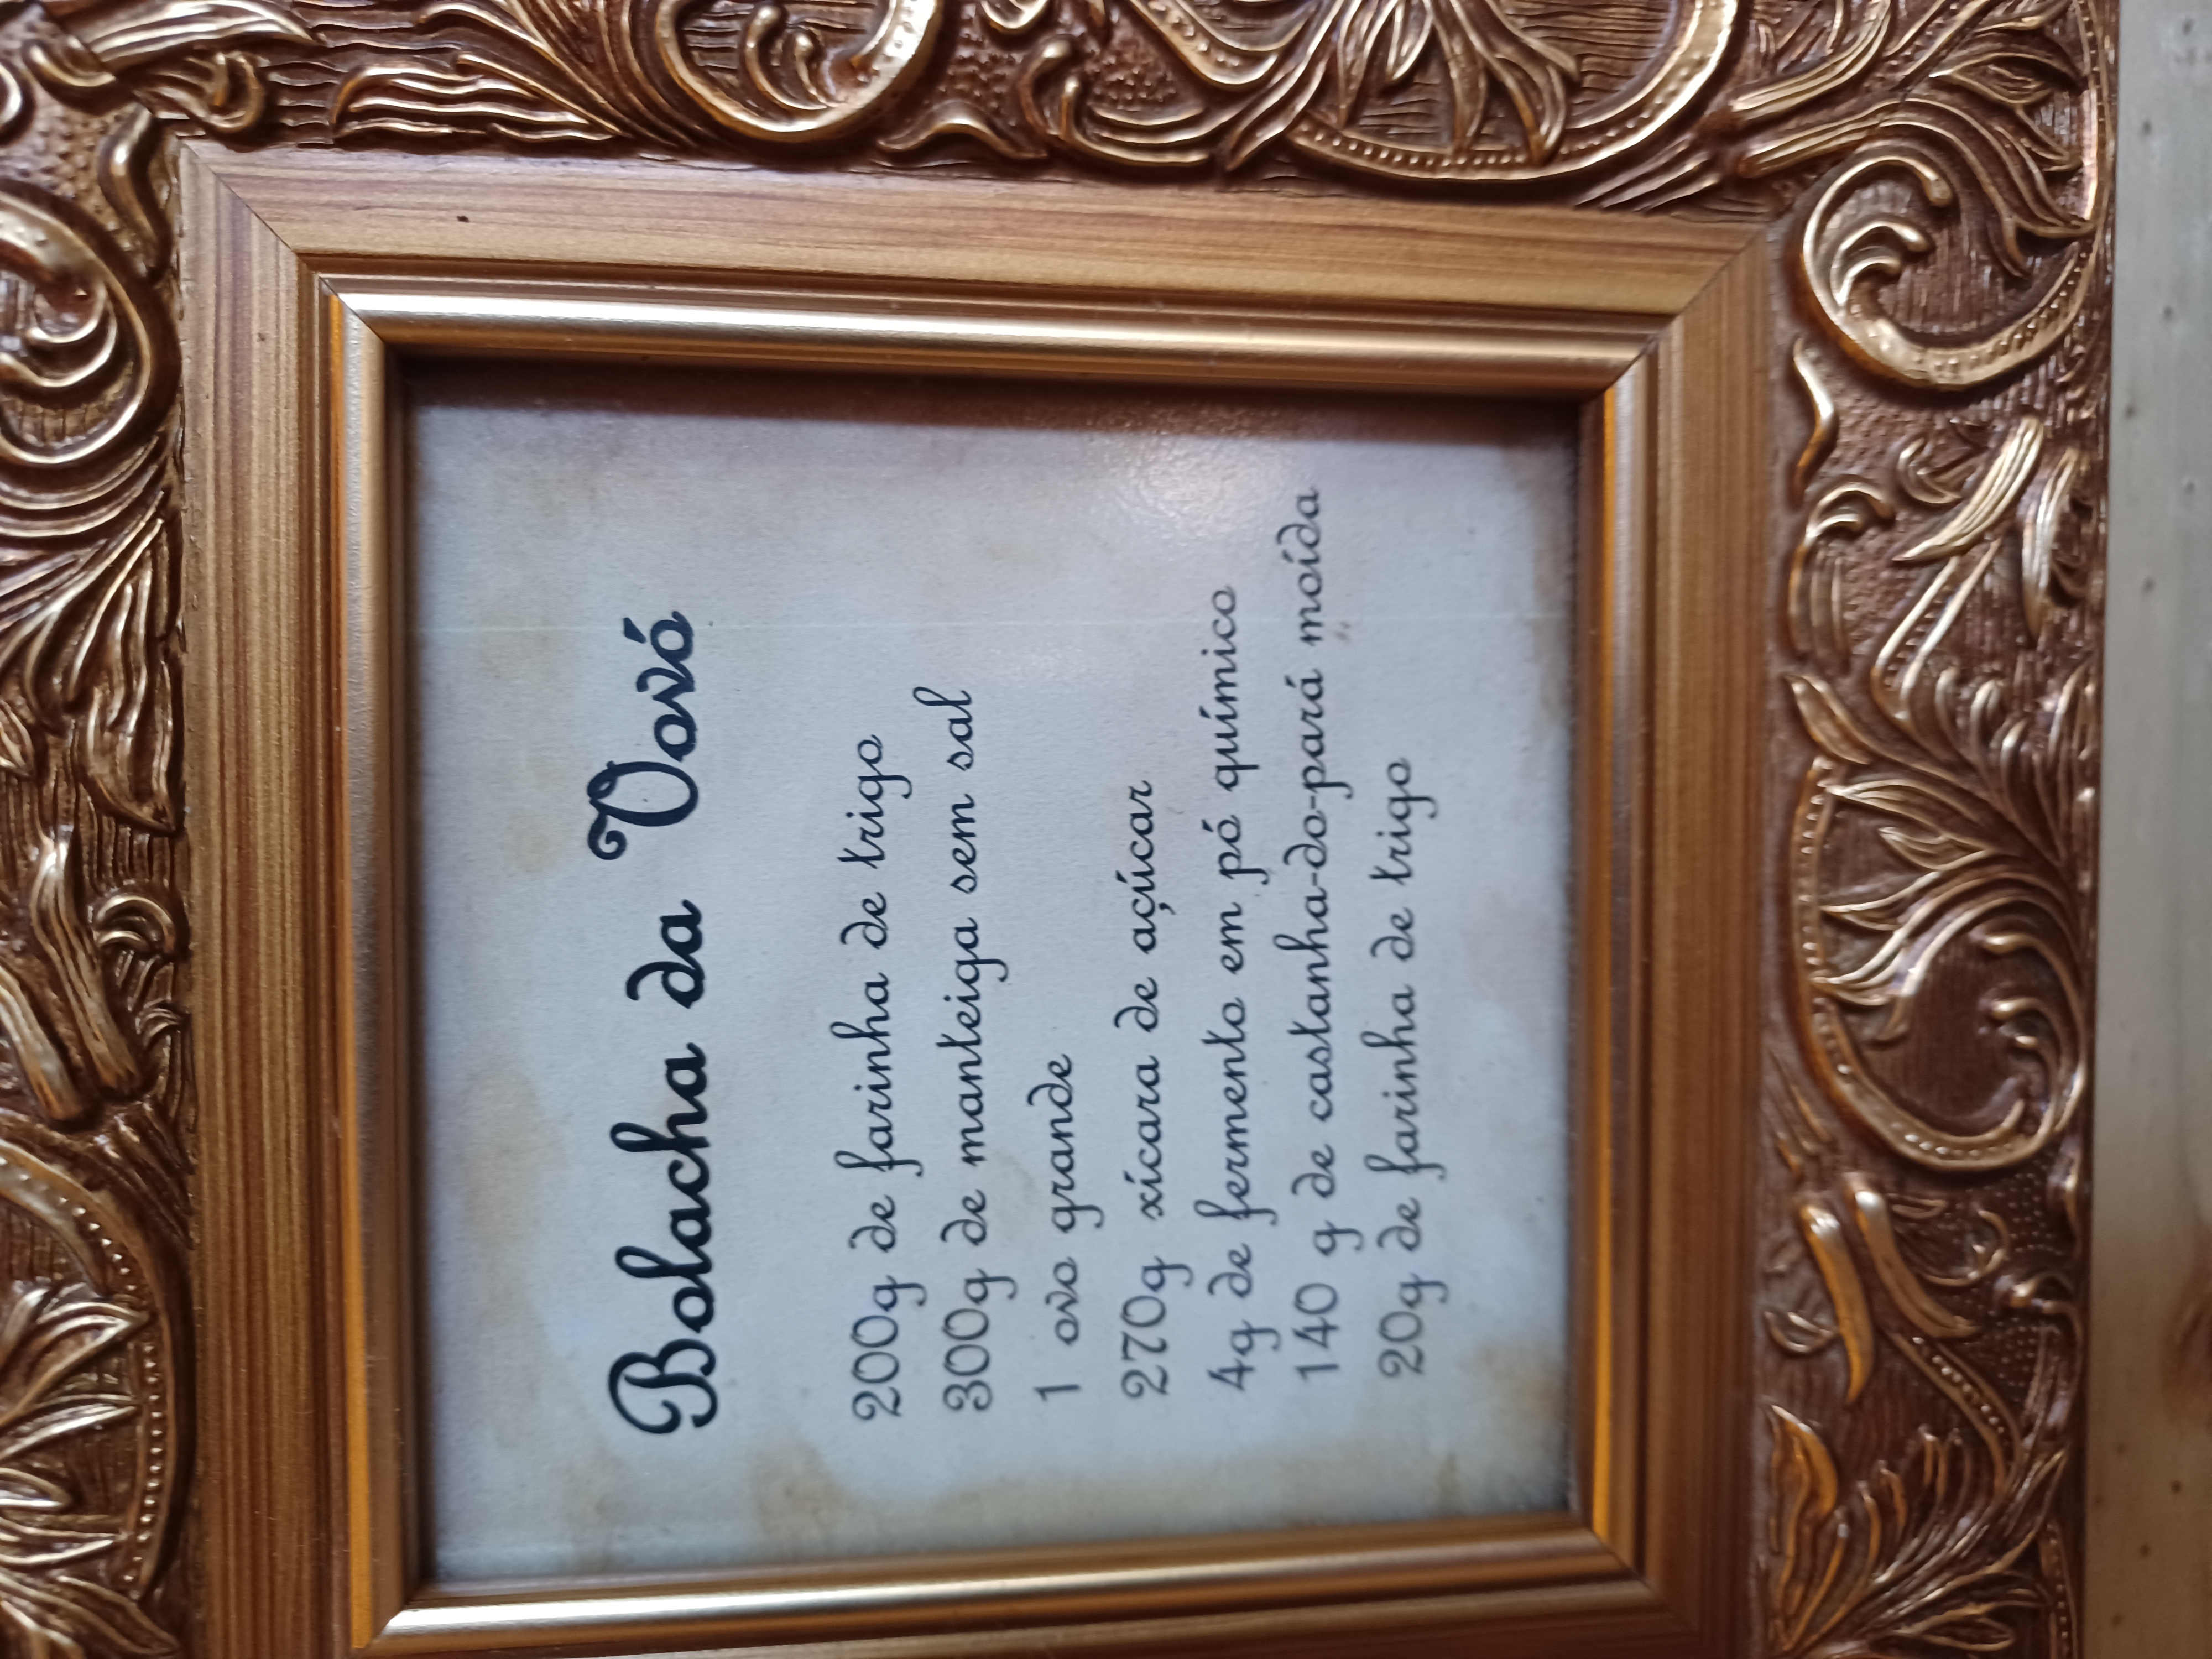 Bolacha da Vovó
200g de farinha de trigo
300g de manteiga sem sal
1 ovo grande
270g xícara de açúcar
4g de fermento em pó químico
140 g de castanha-do-pará moída
20g de farinha de trigo